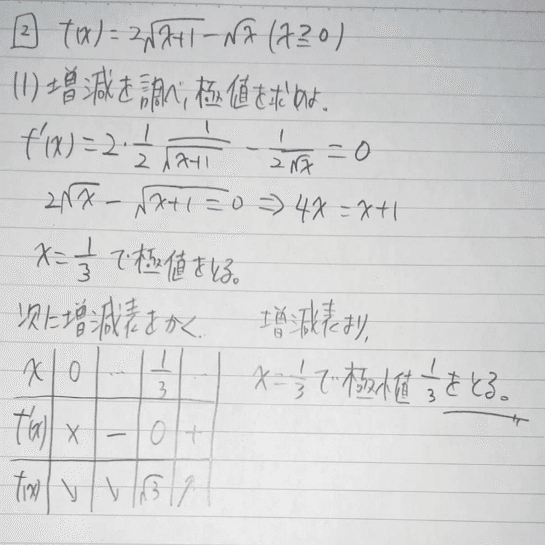 2 f(x)=2√x+1-√x (x≧0)
(1) 増減を調べ,極値を求めよ.
f'(x)=2・1/2 1/√x+1 - 1/2√x =0
2√x-√x+1=0⇒4x=x+1
x=1/3で極値をとる。
次に増減表をかく. 増減表より,
x 0 … 1/3 …
f'(x) × - 0 +
f(x) ↘ ↘ √3 ↗
x=1/3で極小値1/3をとる。